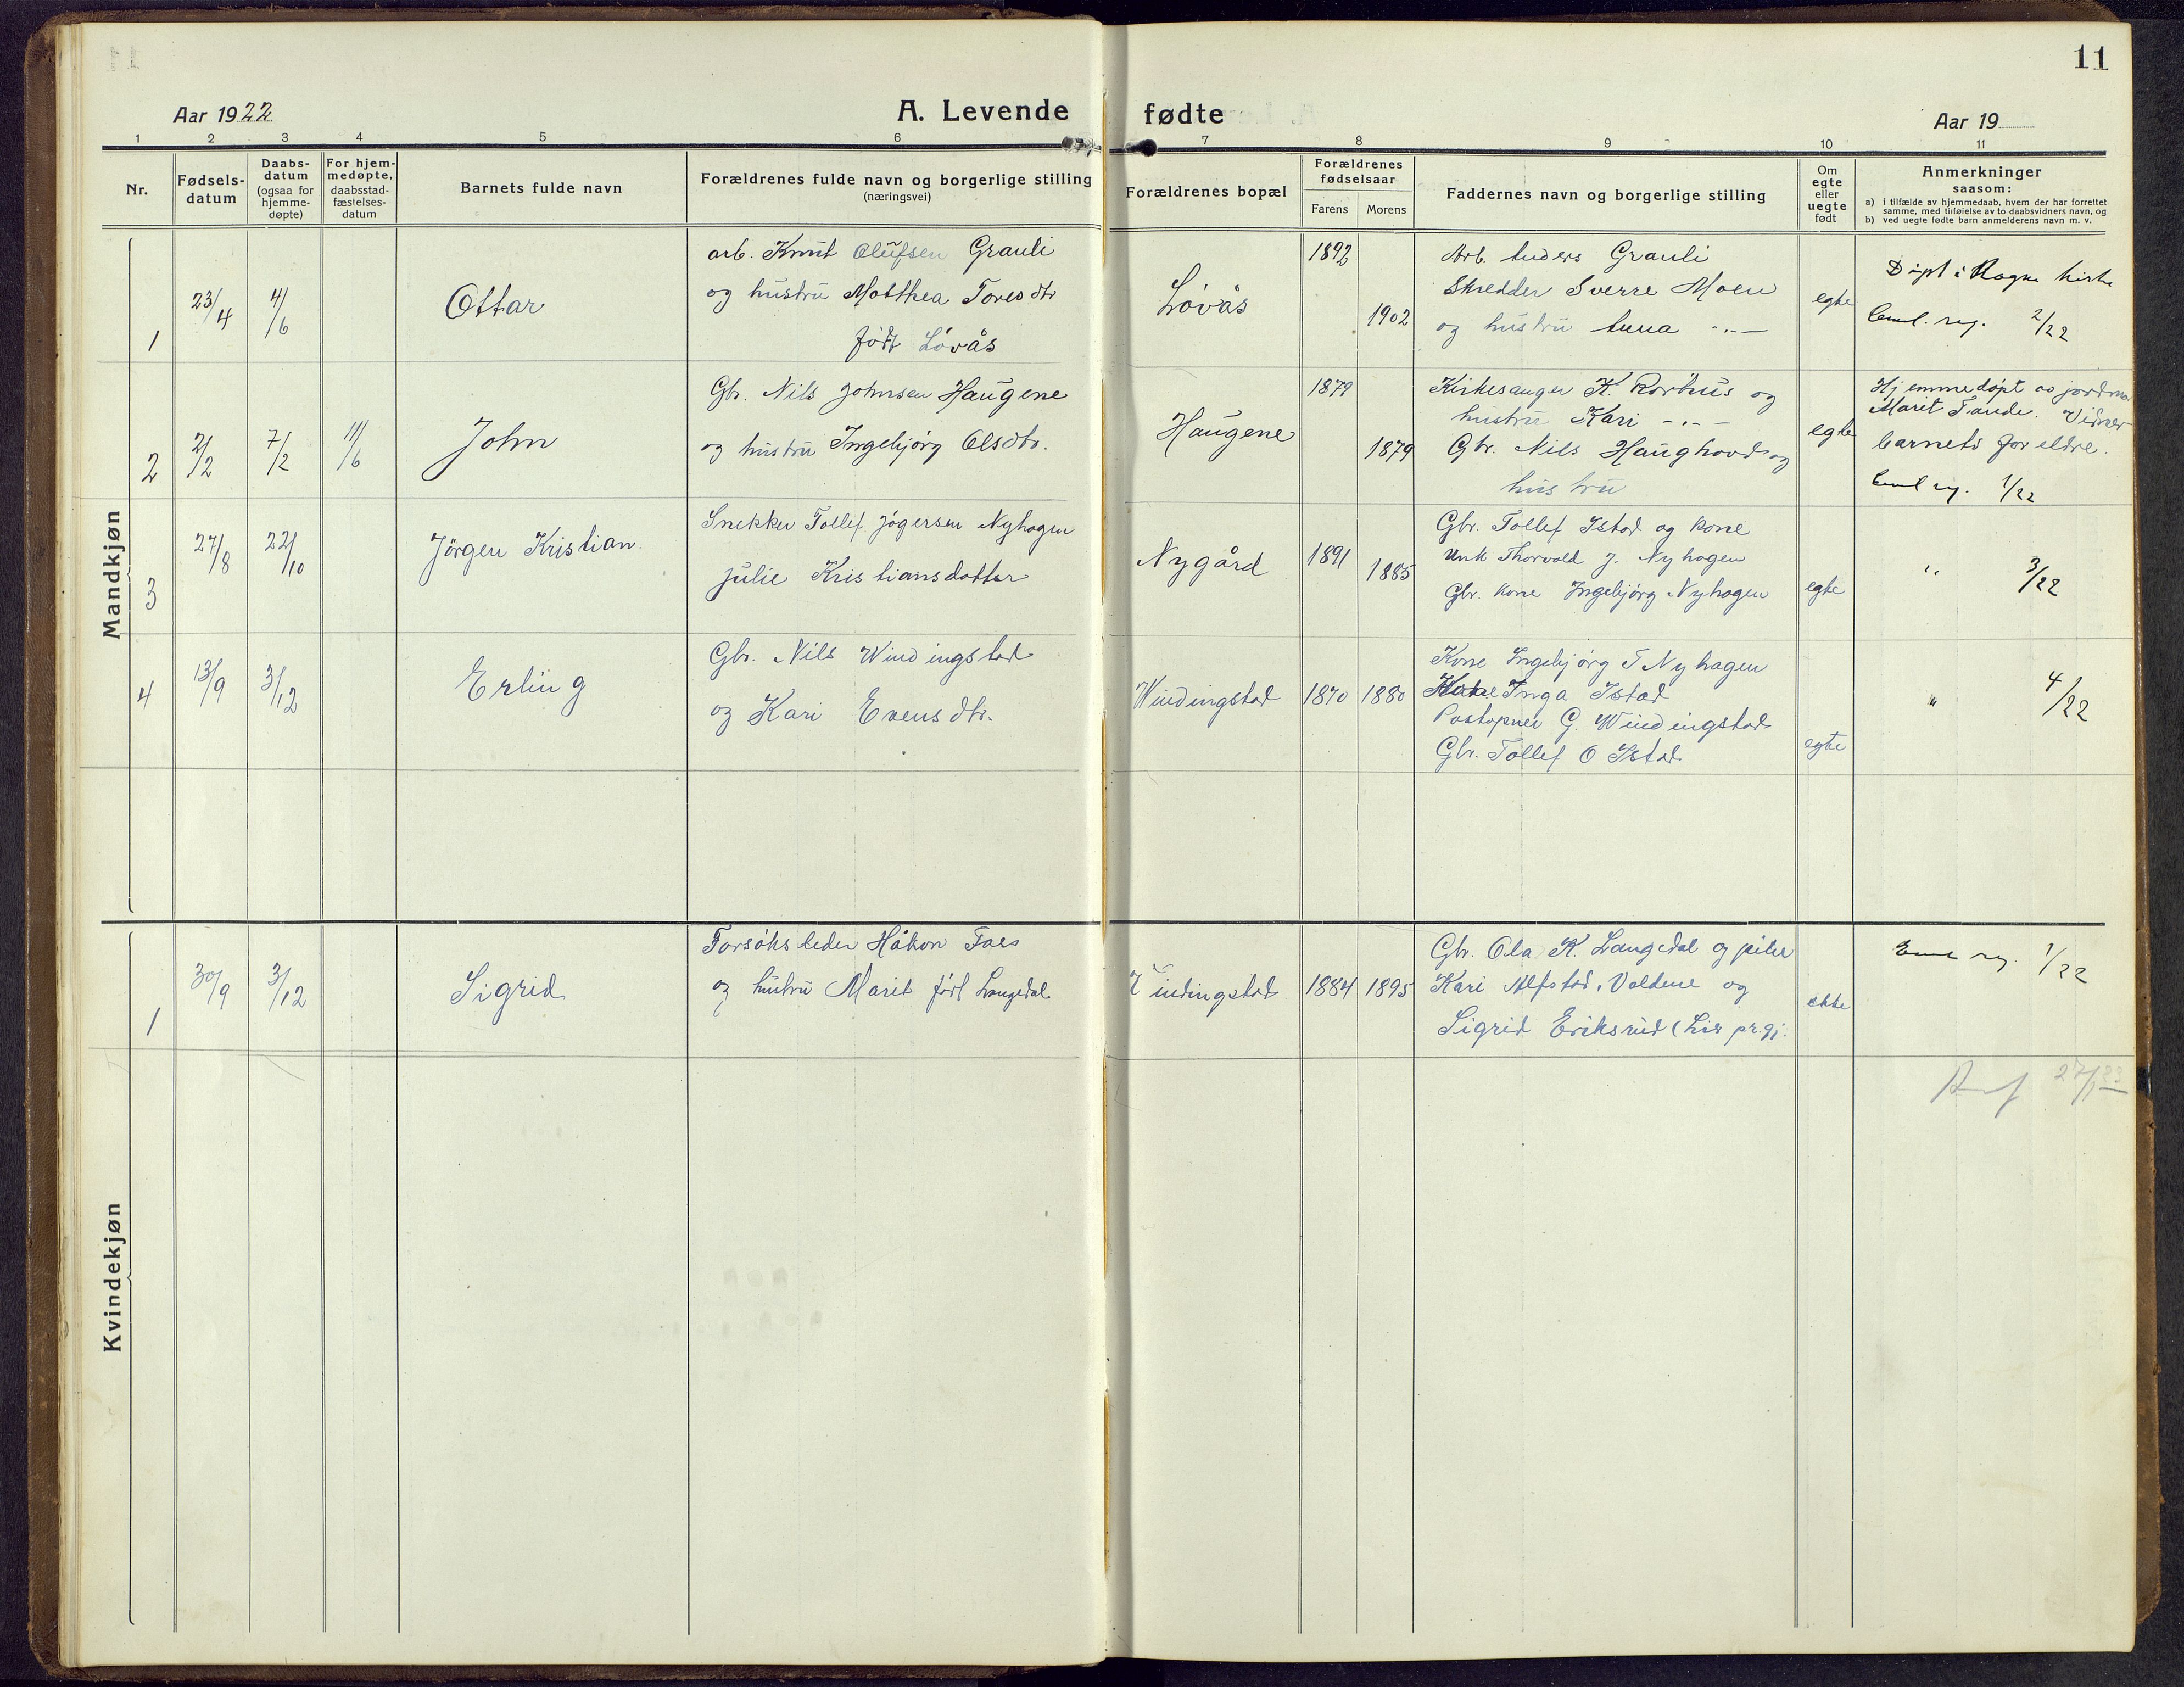 11
Aar 1922
A. Levende fødte
Aar 19
1 2 3 4 5 6 7 8 9 10 11
Nr.
Fødsels-
datum
Daabs-
datum
(ogsaa for
hjemme-
døpte)
For hjem-
medøpte,
daabsstad-
fæstelses-
datum
Barnets fulde navn
Forældrenes fulde navn og borgerlige stilling
(næringsvei)
Forældrenes bopæl
Forældrenes
fødselsaar
Farens Morens
Faddernes navn og borgerlige stilling
Om
egte
eller
uegte
født
Anmerkninger
saasom:
a) i tilfælde av hjemmedaab, hvem der har forrettet
samme, med tilføielse av to daabsvidners navn, og
b) ved uegte fødte barn anmelderens navn m. v.
Mandkjøn
1
23/4
4/6
Ottar
arb. Knut Olufsen Grauli
og hustru Matthea Toresdtr
født Løvås
Løvås
1892
1902
Arb. Anders Grauli
Skredder Sverre Moen
og hustru Anna -"-
egte
Døpt i Rogne kirke
reg. 2/22
2
2/2
7/2
11/6
John
Gbr. Nils Johnsen Haugene
og hustru Ingebjørg Olsdtr.
Haugene
1879
1879
Kirkesanger K. Rørhus og
hustru Kari -"-
Gbr. Nils Haughovd og
hustru
egte
Hjemmedøpt av jordmor
Marit Tande. Vidner
barnets foreldre.
reg. 1/22
3
27/8
22/10
Jörgen Kristian.
Snekker Tollef Jögersen Nyhagen
Julie Kristiansdatter
Nygård
1891
1885
Gbr. Tollef Istad og kone
Unk Thorvald J. Nyhagen
Gbr. kone Ingebjørg Nyhagen
egte
" 3/22
4
13/9
3/12
Erling
Gbr. Nils Windingstad
og Kari Evensdtr.
Windingstad
1870
1880
Kone Ingebjørg T Nyhagen
Kone Inga Istad
Postopner G. Windingstad
Gbr. Tollef O Istad
egte
" 4/22
Kvindekjøn
1
30/9
3/12
Sigrid
Forsøksleder Håkon Foss
og hustru Marit født Langedal
Vindingstad
1884
1895
Gbr. Ola K. Langedal og pike
Kari Alfstad, Valdene og
Sigrid Eriksrud (Lir pr.gj.
ekte
reg. 1/22
27/1 23